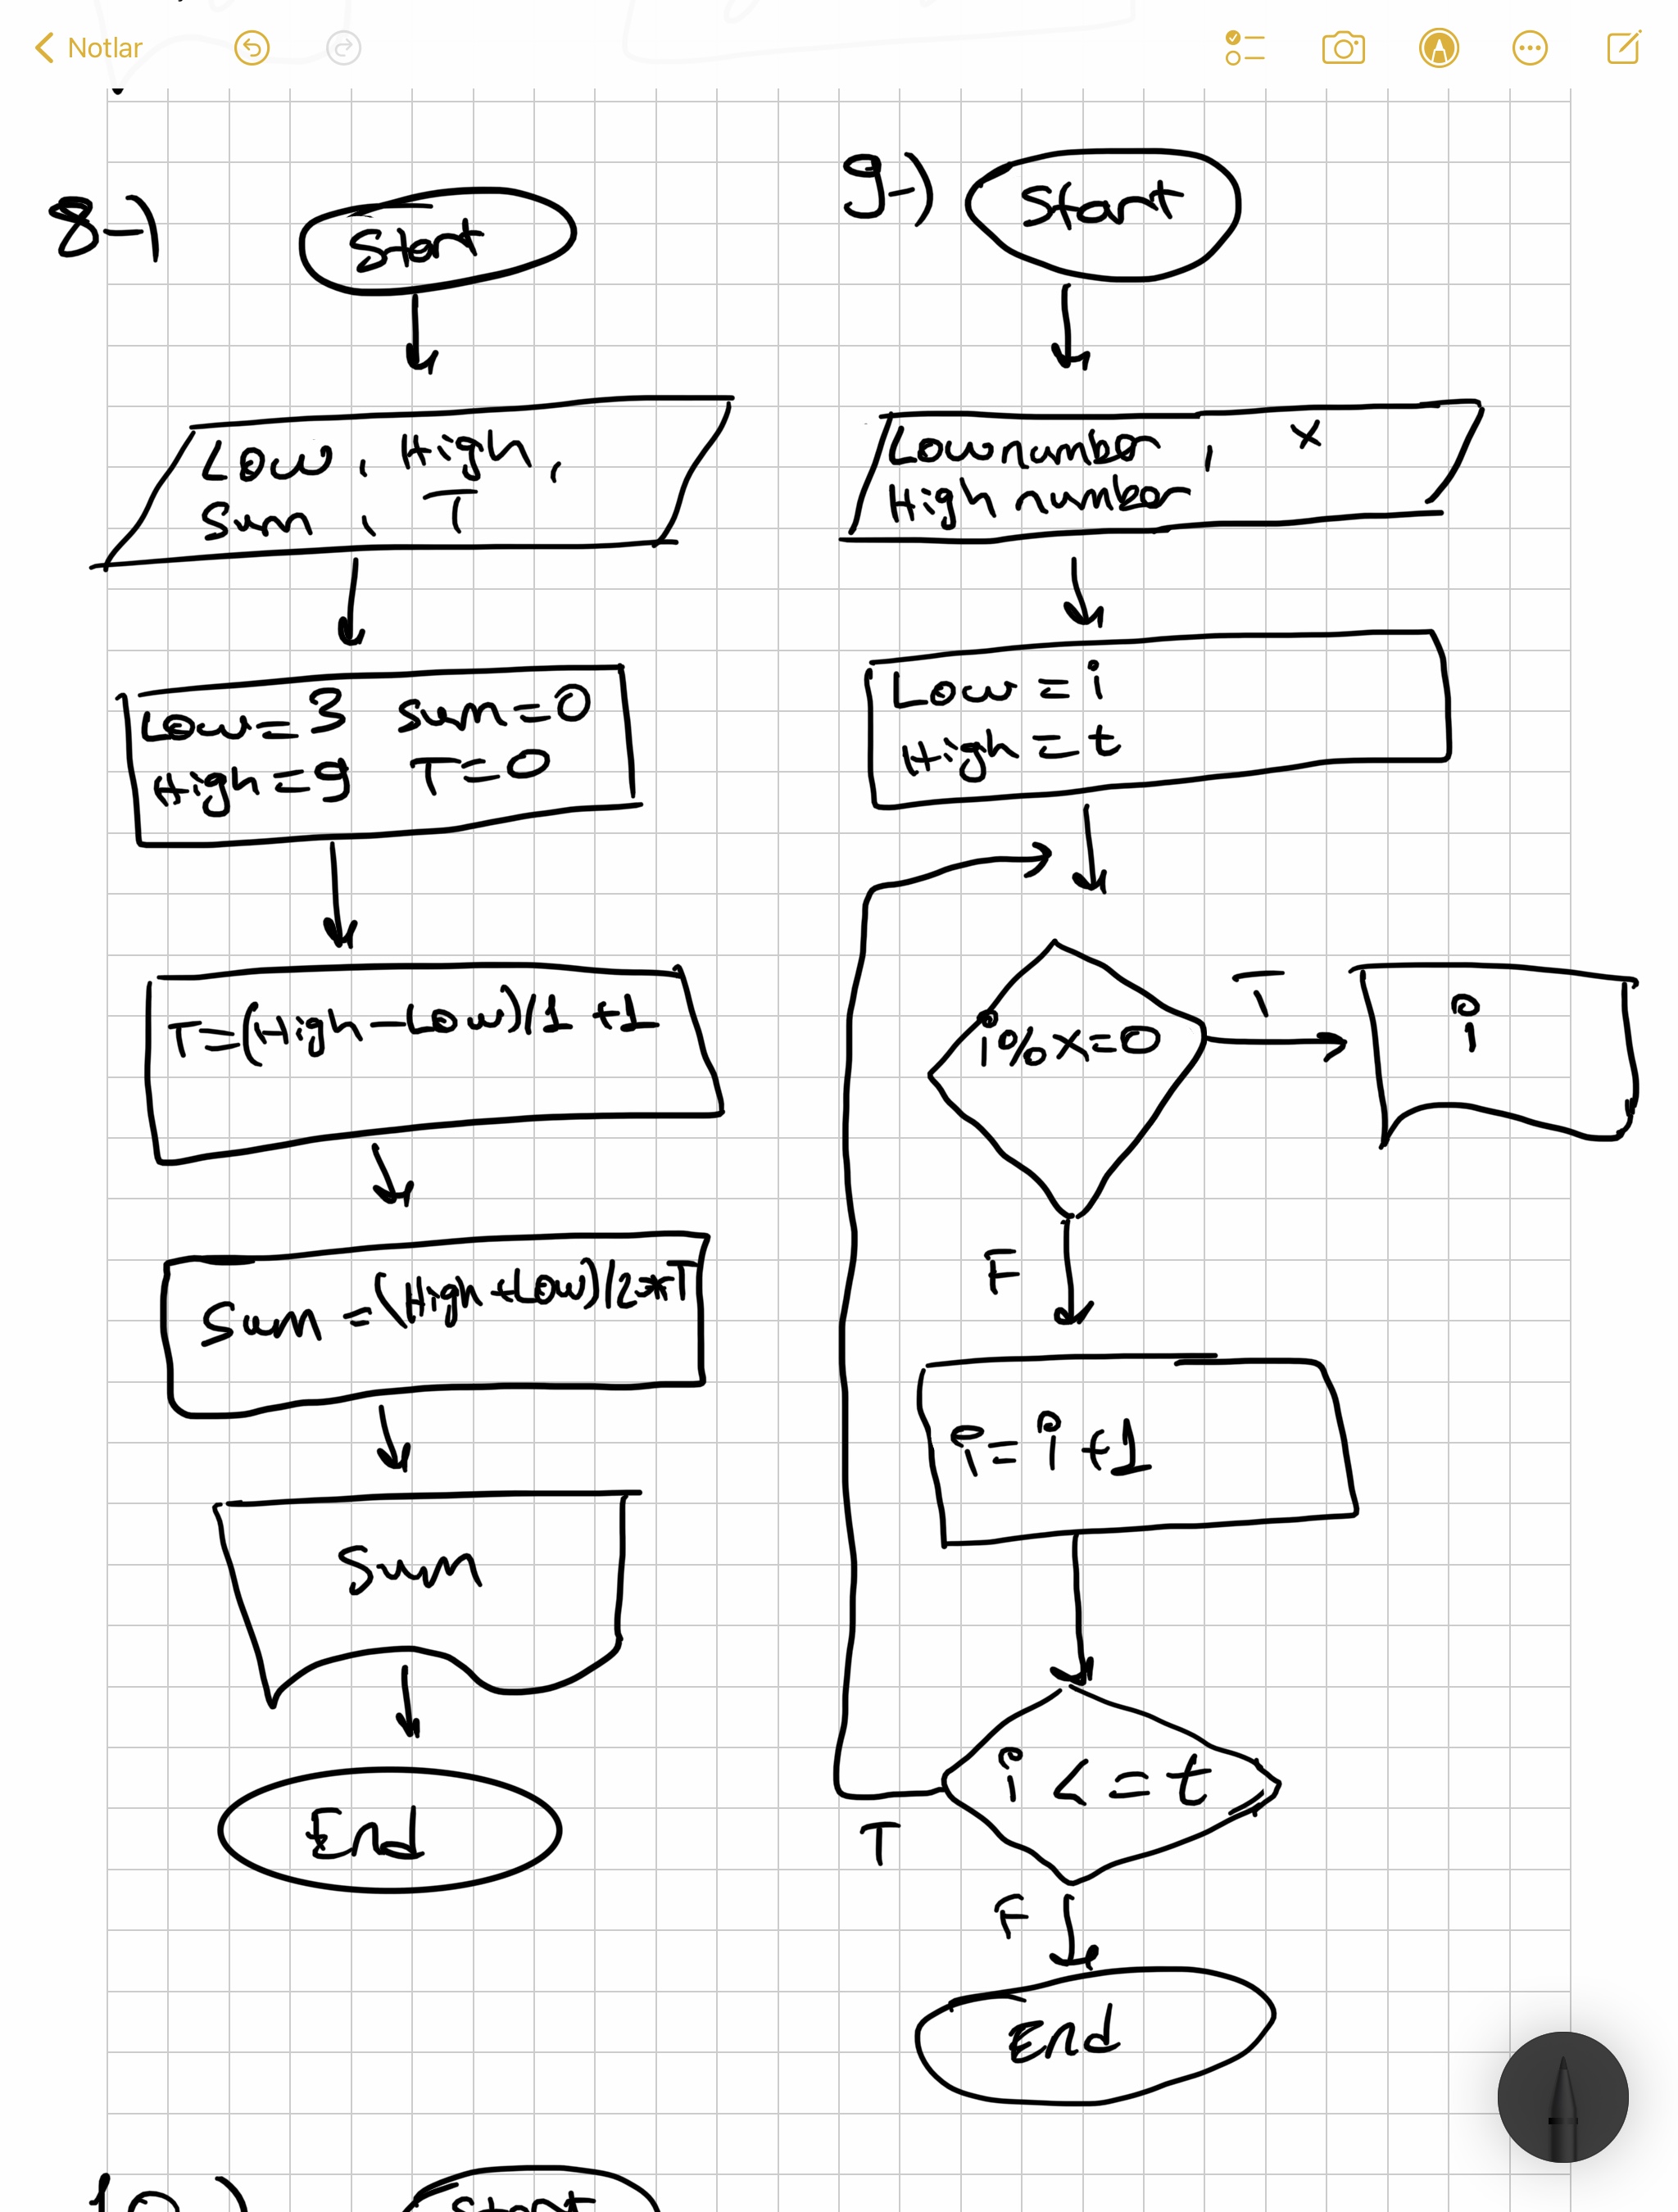 Notlar
8-)
Start
Low, High,
Sum, T
Low=3 sum=0
High=9 T=0
T=(High-Low)/1 +1
Sum =(High+Low)/2*T
Sum
End
9-)
Start
Lownumber, x
High number
Low = i
High = t
i%x=0
T
i
F
i= i +1
i <= t
T
F
End
10-)
Start